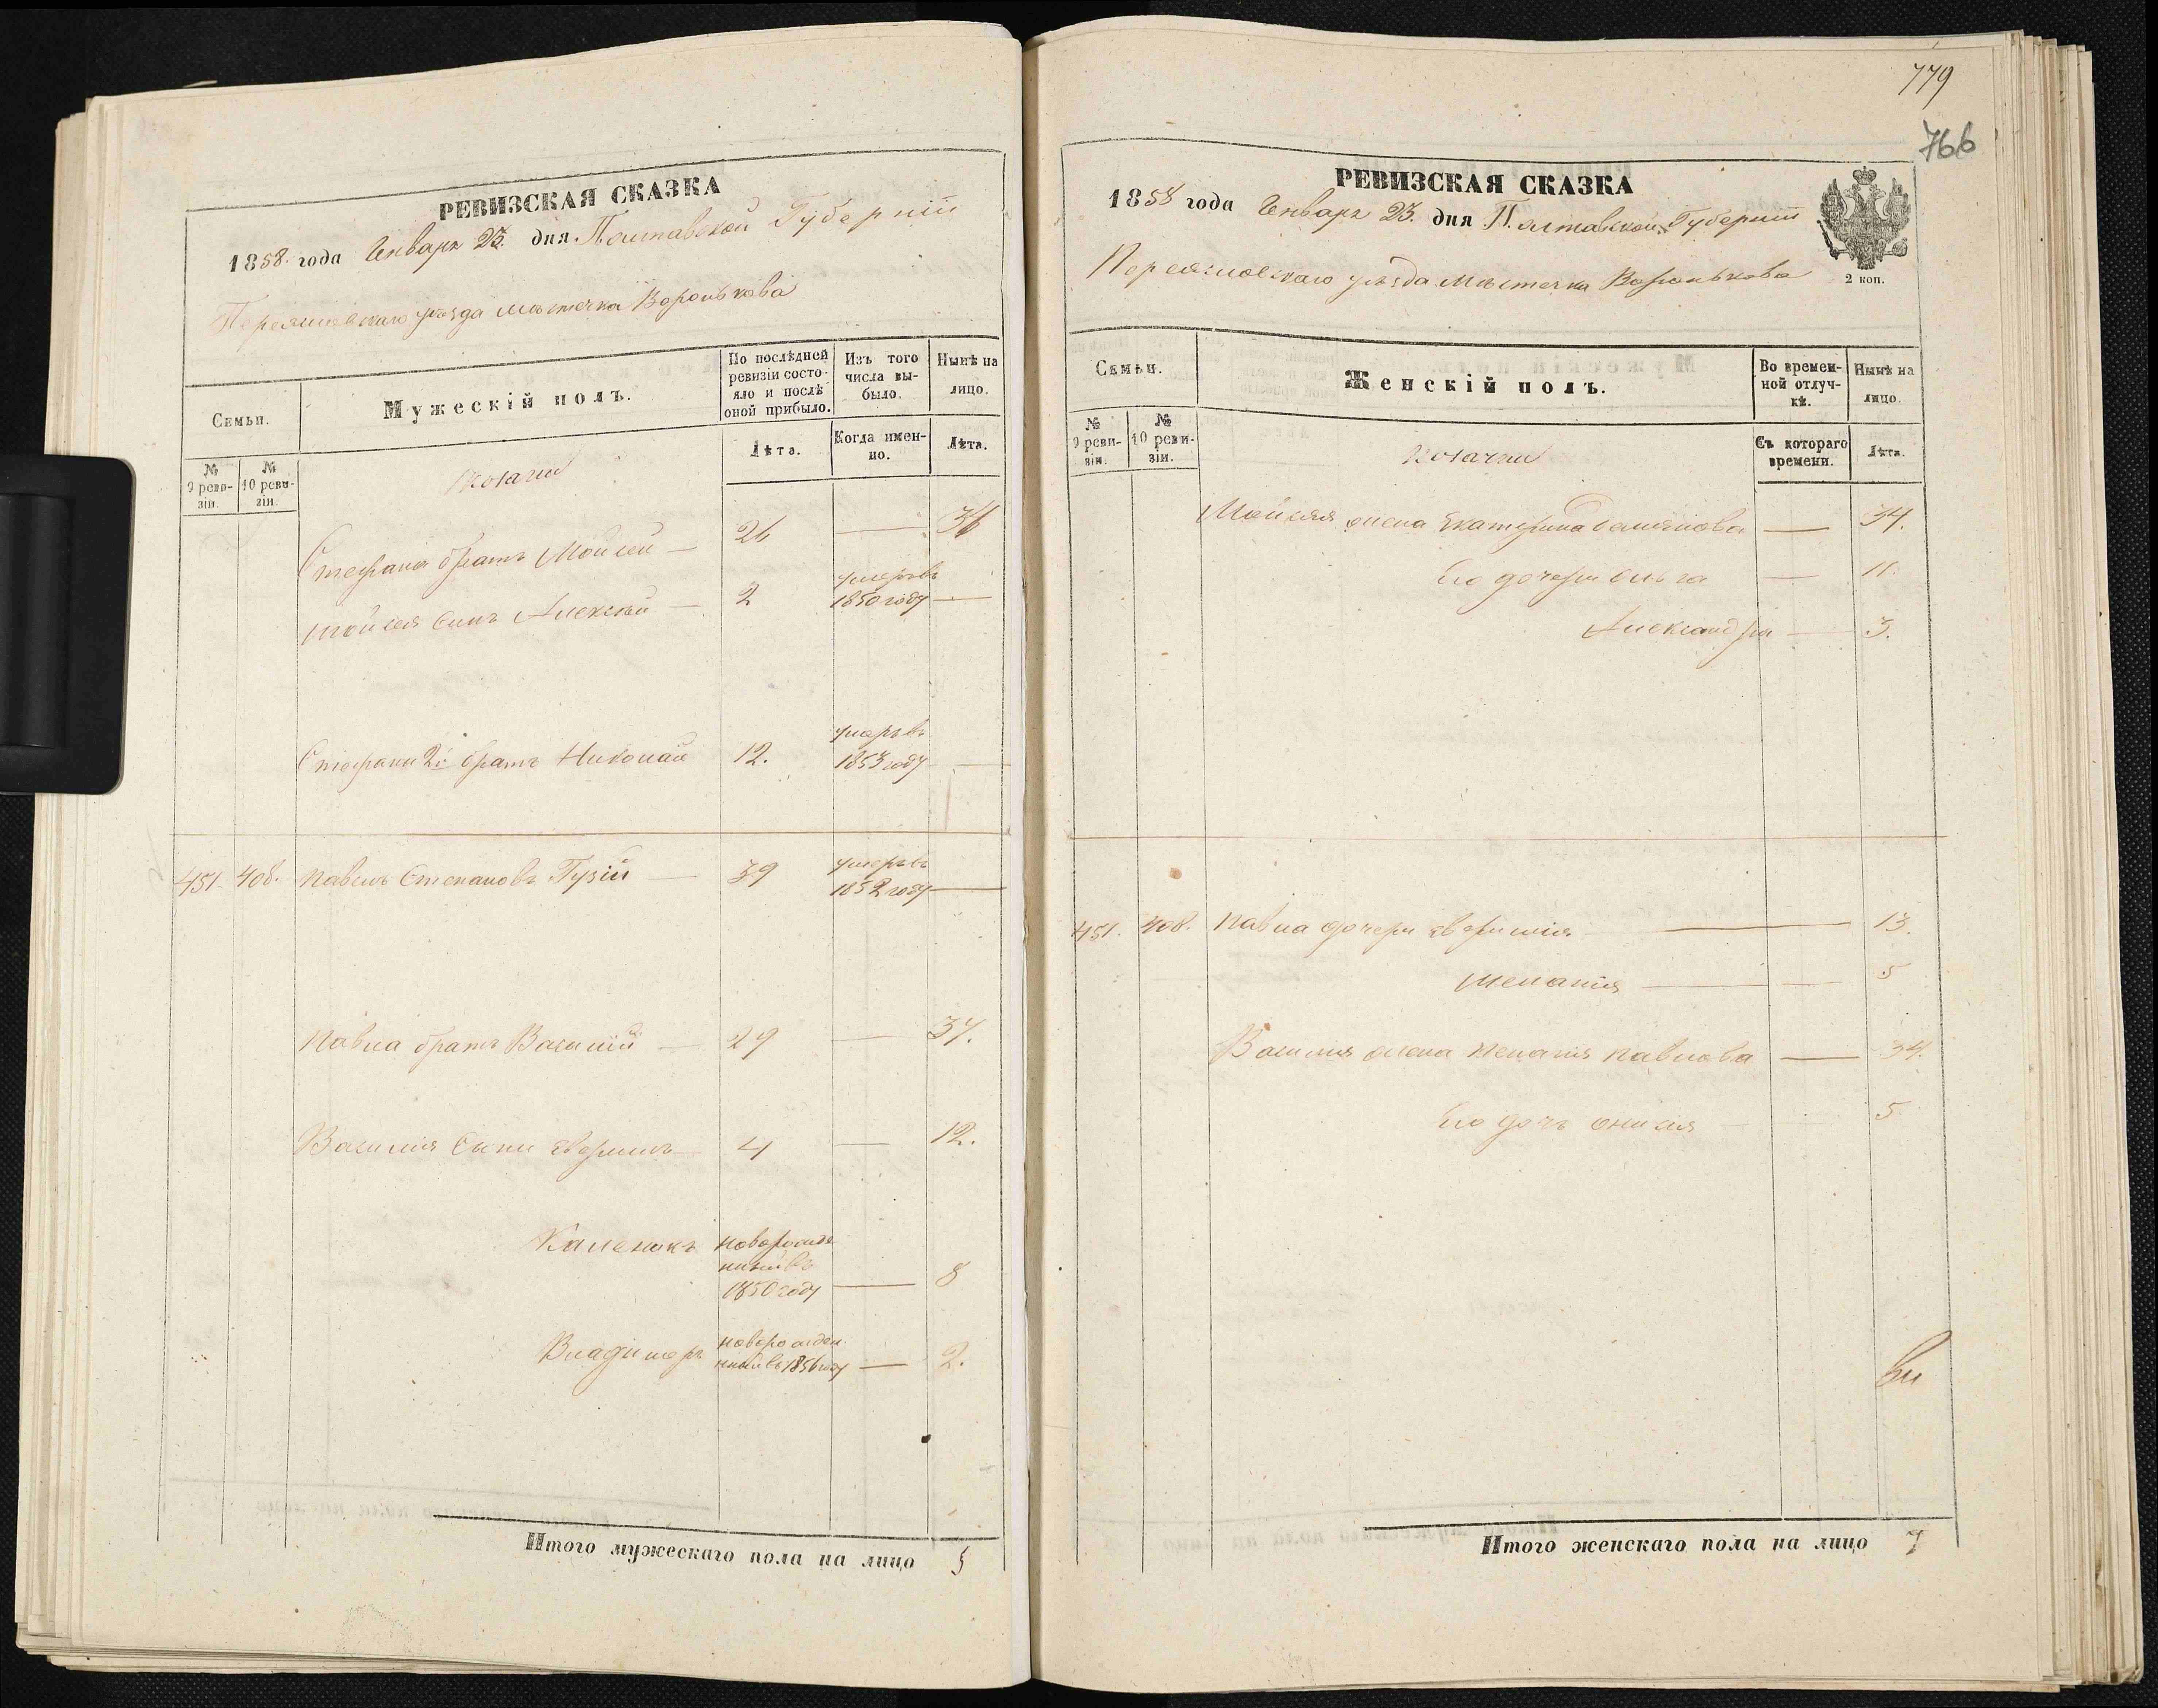 РЕВИЗСКАЯ СКАЗКА
1858 года Генваря 23 дня Полтавской Губерніи
Переяславскаго уѣзда мѣстечка Воронькова
Семьи.
Мужескій полъ.
По послѣдней ревизіи состояло и послѣ оной прибыло.
Изъ того числа выбыло.
Нынѣ на лицо.
№ 9 ревизіи.
№ 10 ревизіи.
Козаки
Лѣта.
Когда именно.
Лѣта.
Стефана братъ Мойсей — 26 — 34
Мойсея Сынъ Алексѣй — 2 умеръ въ 1850 году —
Стефана 2й братъ Николай 12. умеръ въ 1853 году —
451. 408. Павелъ Степановъ Гузій — 39 умеръ въ 1852 году —
Павла братъ Василій — 29 — 37.
Василія Сыни Авраммъ — 4 — 12.
Каленикъ новорожденный въ 1850 году — 8
Владимеръ новорожденный въ 1856 году — 2.
Итого мужескаго пола на лицо 5
779
766
РЕВИЗСКАЯ СКАЗКА
1858 года Генваря 23 дня Полтавской Губерніи
Переяславскаго уѣзда мѣстечка Воронькова
2 коп.
Семьи.
Женскій полъ.
Во временной отлучкѣ.
Нынѣ на лицо.
№ 9 ревизіи.
№ 10 ревизіи.
Козачки
Съ котораго времени.
Лѣта.
Мойсея жена Екатерина — 34.
Его дочери Ольга — 11.
Александра — 3.
451. 408. Павла дочери — 13.
Меланія — 5
Василія жена Меланія Павлова — 34.
Его дочь Онисія — 5
Итого женскаго пола на лицо 7